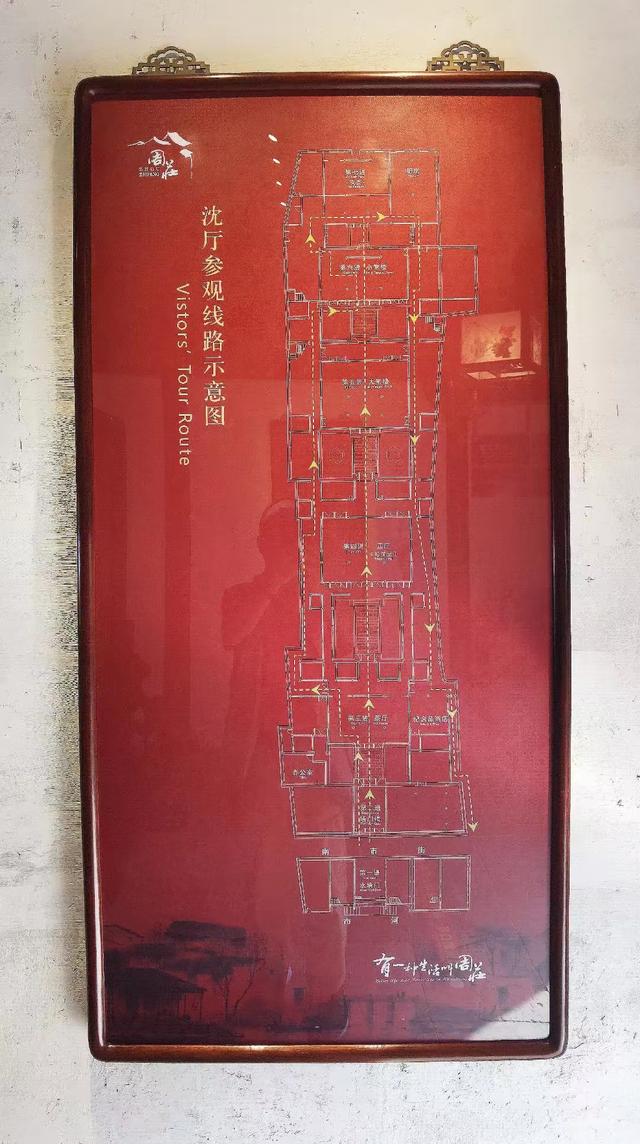 周莊
沈厅参观线路示意图
Vistors' Tour Route
第七进
厨房
第六进 小堂楼
第五进 大堂楼
第四进 正厅
第三进 茶厅
纪念品商店
办公室
第二进
墙门楼
南市街
第一进
水墙门
市河
有一种生活叫周莊